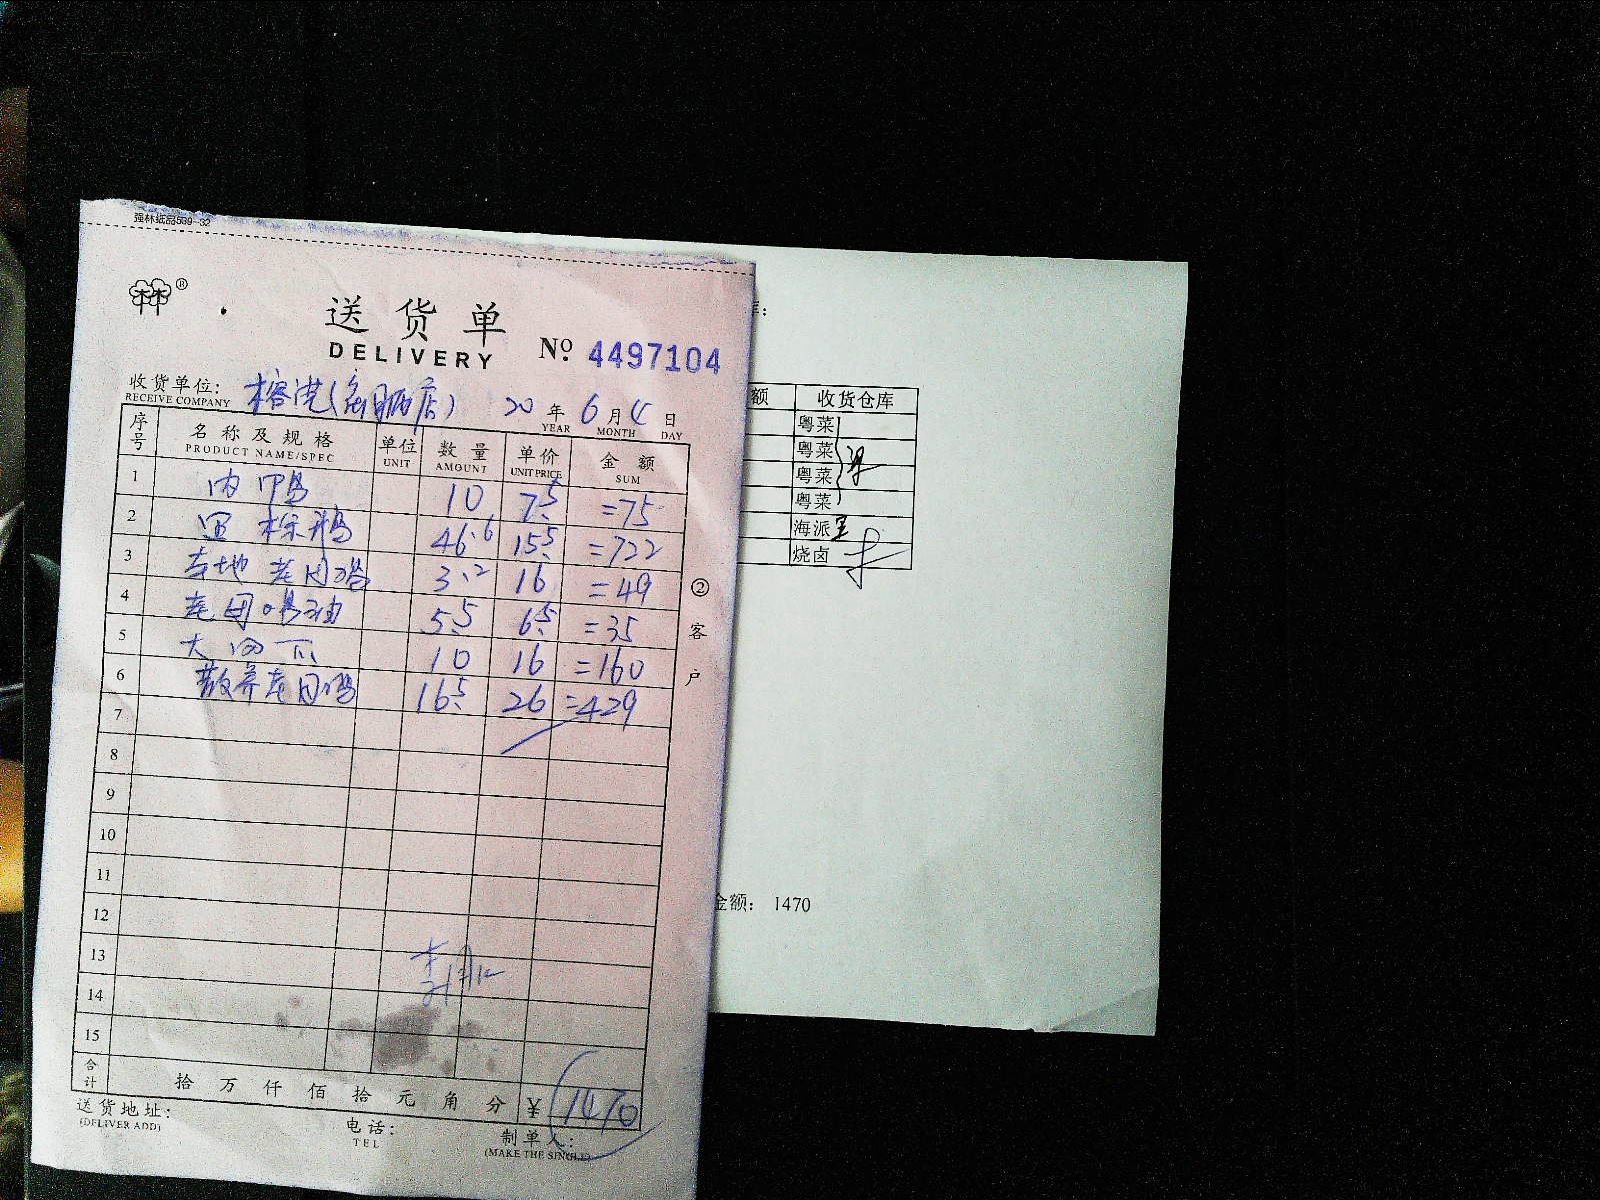 强林纸品539-32
林®
送货单
DELIVERY
№ 4497104
收货单位:
RECEIVE COMPANY
20 年 6 月 4 日
YEAR MONTH DAY
序号 名称及规格 单位 数量 单价 金额
PRODUCT NAME/SPEC UNIT AMOUNT UNIT PRICE SUM
1 10 7.5 =75
2 46.6 15.5 =722
3 本地老母鸡 3.2 16 =49
4 老母鸡油 5.5 6.5 =35
5 大 10 16 =160
6 散养老母鸡 16.5 26 =429
7
8
9
10
11
12
13
14
15
合计 拾 万 仟 佰 拾 元 角 分 ¥ 1470
②客户
送货地址:
(DELIVER ADD)
电话:
TEL
制单人:
(MAKE THE SINGLE)
额 收货仓库
粤菜
粤菜
粤菜
粤菜
海派
烧卤
金额: 1470